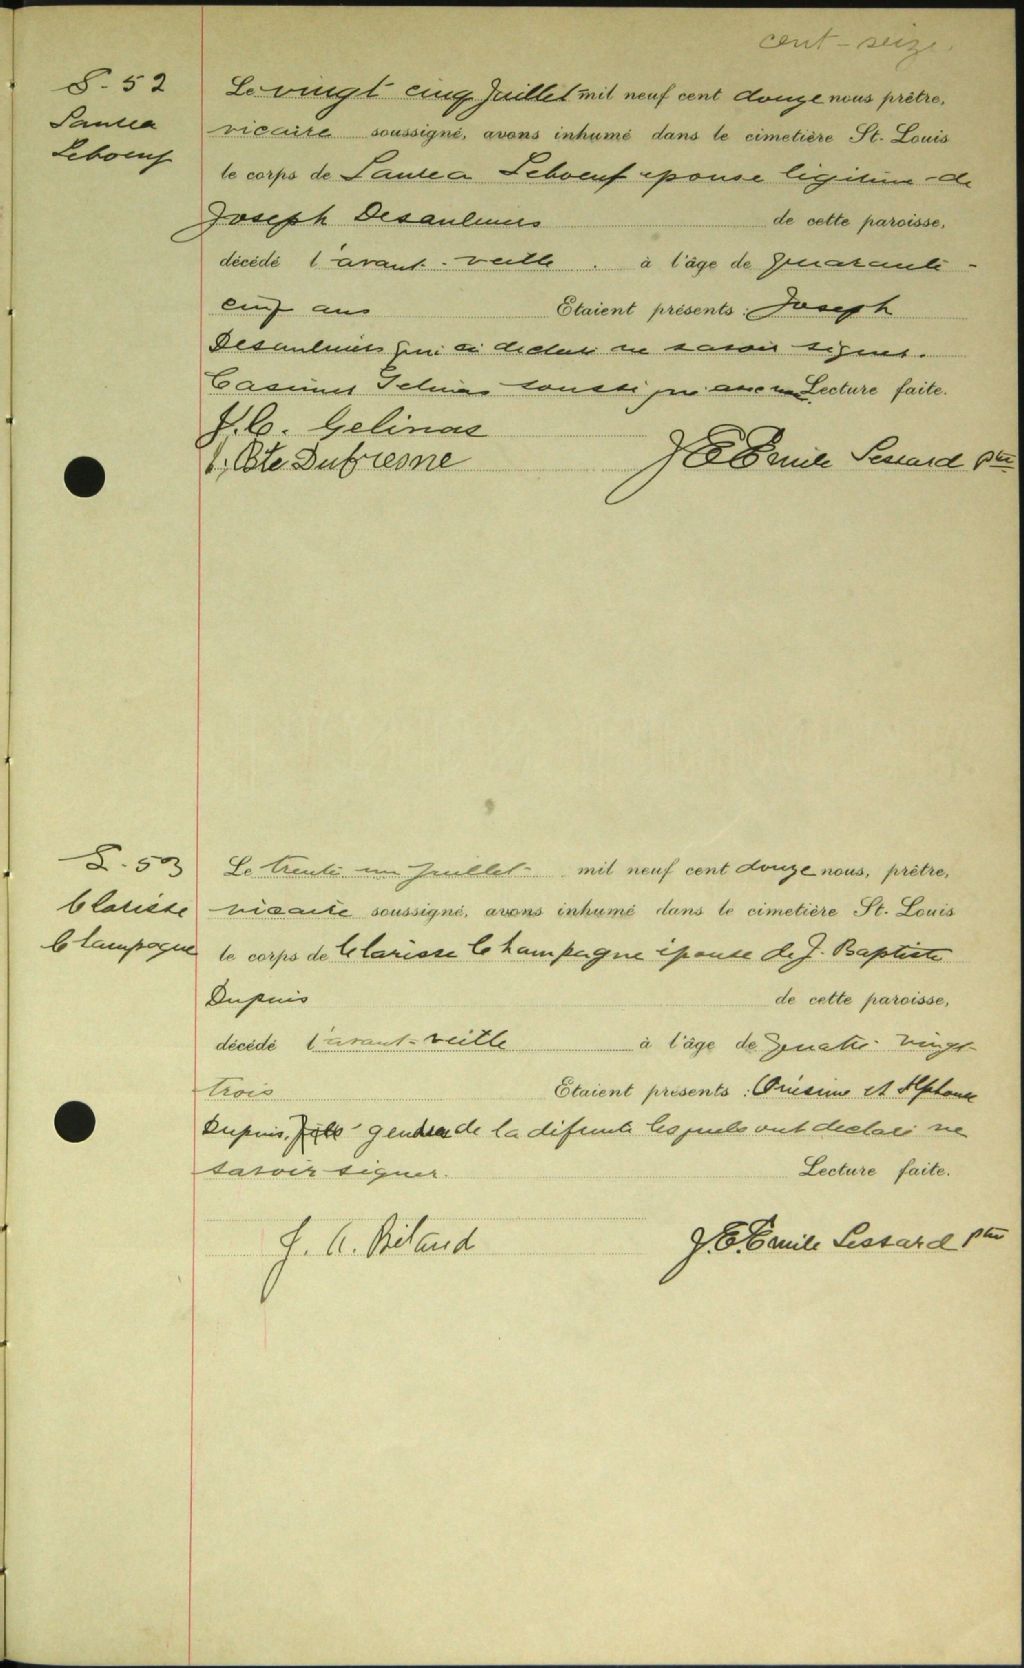 cent-seize
S-52
Laurea
Leboeuf
Le vingt cinq Juillet mil neuf cent douze nous prêtre,
vicaire soussigné, avons inhumé dans le cimetière St. Louis
le corps de Laurea Leboeuf épouse légitime de
Joseph Desaulniers de cette paroisse,
décédé l'avant-veille à l'âge de quarante-
cinq ans Etaient présents: Joseph
Desaulniers qui a déclaré ne savoir signer.
Casimir Gelinas soussigné avec nous. Lecture faite.
J. C. Gelinas
J. Bte Dufresne
J E Emile Lessard ptre
S-53
Clarisse
Champagne
Le trente un Juillet mil neuf cent douze nous, prêtre,
vicaire soussigné, avons inhumé dans le cimetière St. Louis
le corps de Clarisse Champagne épouse de J. Baptiste
Dupuis de cette paroisse,
décédé l'avant-veille à l'âge de quatre-vingt-
trois Etaient présents: Onésime et Alphonse
Dupuis, fils gendre de la défunte lesquels ont déclaré ne
savoir signer. Lecture faite.
J. A. Béland
J. E. Emile Lessard ptre